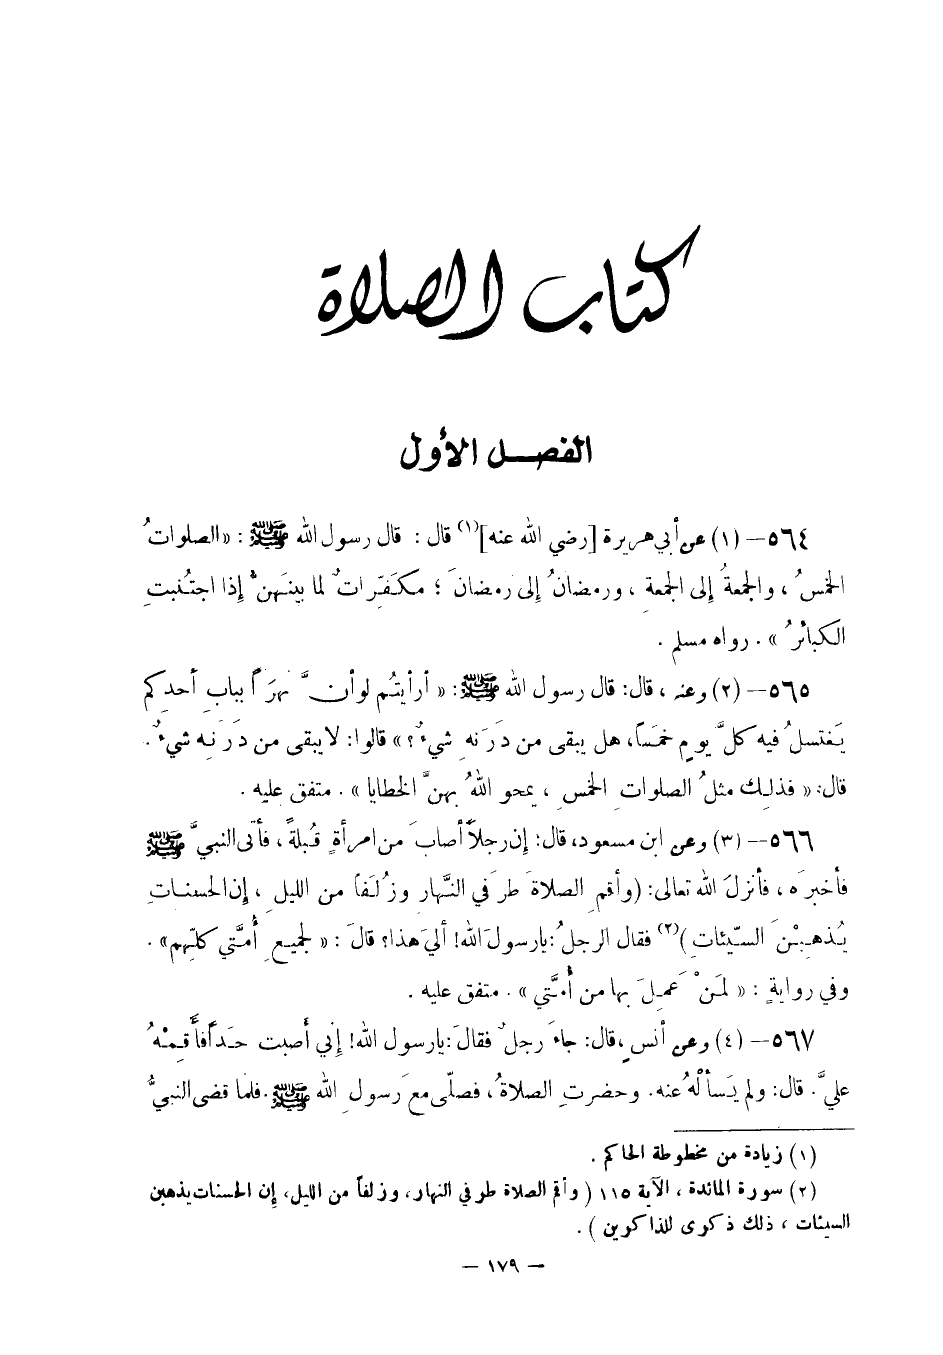 كتاب الصلاة
الفصل الأول
٥٦٤– (١) عن أبي هريرة [رضي الله عنه](١) قال : قال رسول الله ﷺ : «الصلواتُ
الخمسُ ، والجمعةُ إلى الجمعةِ ، ورمضانُ إلى رمضانَ ؛ مكفِّراتٌ لما بينَهنَّ إذا اجتُنبتِ
الكبائرُ » . رواه مسلم .
٥٦٥– (٢) وعنه ، قال: قال رسول الله ﷺ : « أرأيتُم لو أنَّ نهرَاً ببابِ أحدِكم
يَغتسلُ فيه كلَّ يومٍ خمَساً، هل يبقى من دَرَنهِ شيءٌ؟ » قالوا: لا يبقى من دَرَنه شيءٌ.
قال: « فذلك مثلُ الصلواتِ الخمسِ ، يمحو اللهُ بهنَّ الخطايا » . متفق عليه .
٥٦٦– (٣) وعن ابن مسعود، قال: إن رجلاً أصابَ من امرأةٍ قُبلةً ، فأتى النبيَّ ﷺ
فأخبرَه ، فأنزلَ الله تعالى: (وأقمِ الصلاةَ طرَفي النَّهار وزُلَفاً من الليلِ ، إن الحسناتِ
يُذهبْنَ السيّئاتِ )(٢) فقال الرجلُ: يا رسولَ الله! أليَ هذا؟ قالَ : « لجميعِ أُمَّتي كلِّهم» .
وفي روايةٍ : « لمَنْ عَمِلَ بها من أُمَّتي » . متفق عليه .
٥٦٧– (٤) وعن أنسٍ ،قال: جاءَ رجلٌ فقالَ: يا رسول الله! إني أَصبت حدَّاً فأَقِمْهُ
عليَّ. قال: ولم يَسأَلْهُ عنه. وحضرتِ الصلاةُ، فصلّى معَ رسولِ الله ﷺ. فلما قضى النبيُّ
(١) زيادة من مخطوطة الحاكم .
(٢) سورة المائدة ، الآية ١١٥ ( وأقم الصلاة طرفي النهار، وزلفاً من الليل، إن الحسنات يذهبن
السيئات ، ذلك ذكرى للذاكرين ) .
– ١٧٩ –